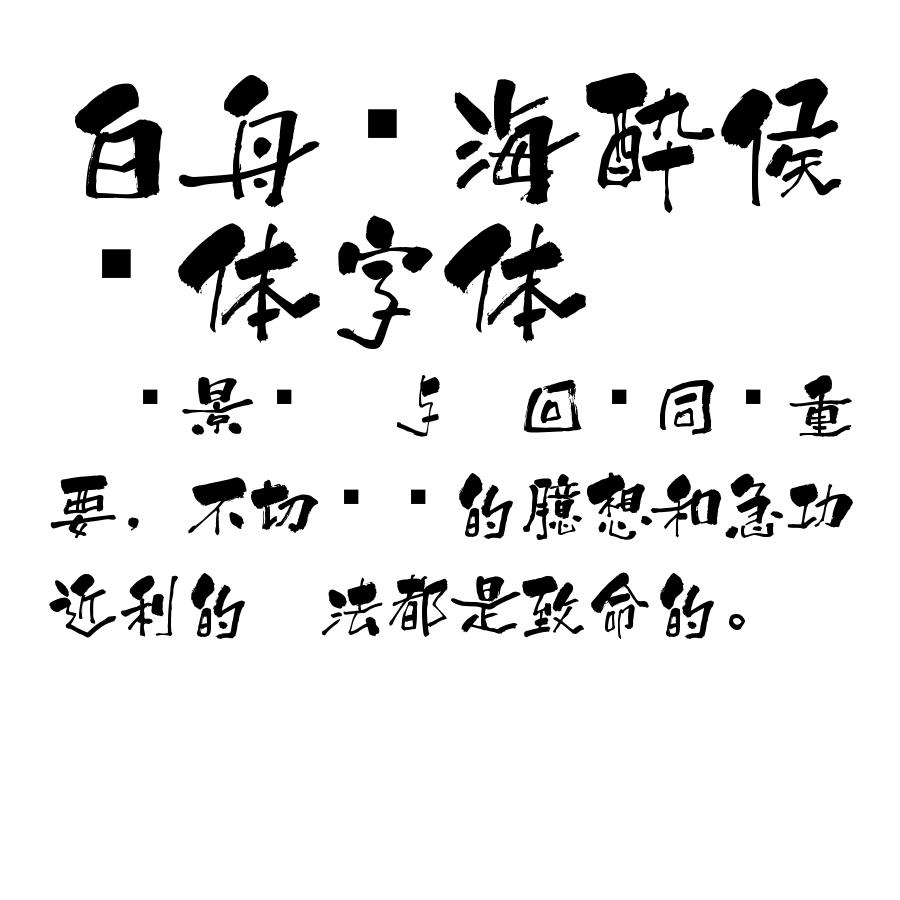 白舟▪海酔侯
▪体字体
▪景▪ 与 回▪同▪重
要，不切▪▪的臆想和急功
近利的 法都是致命的。